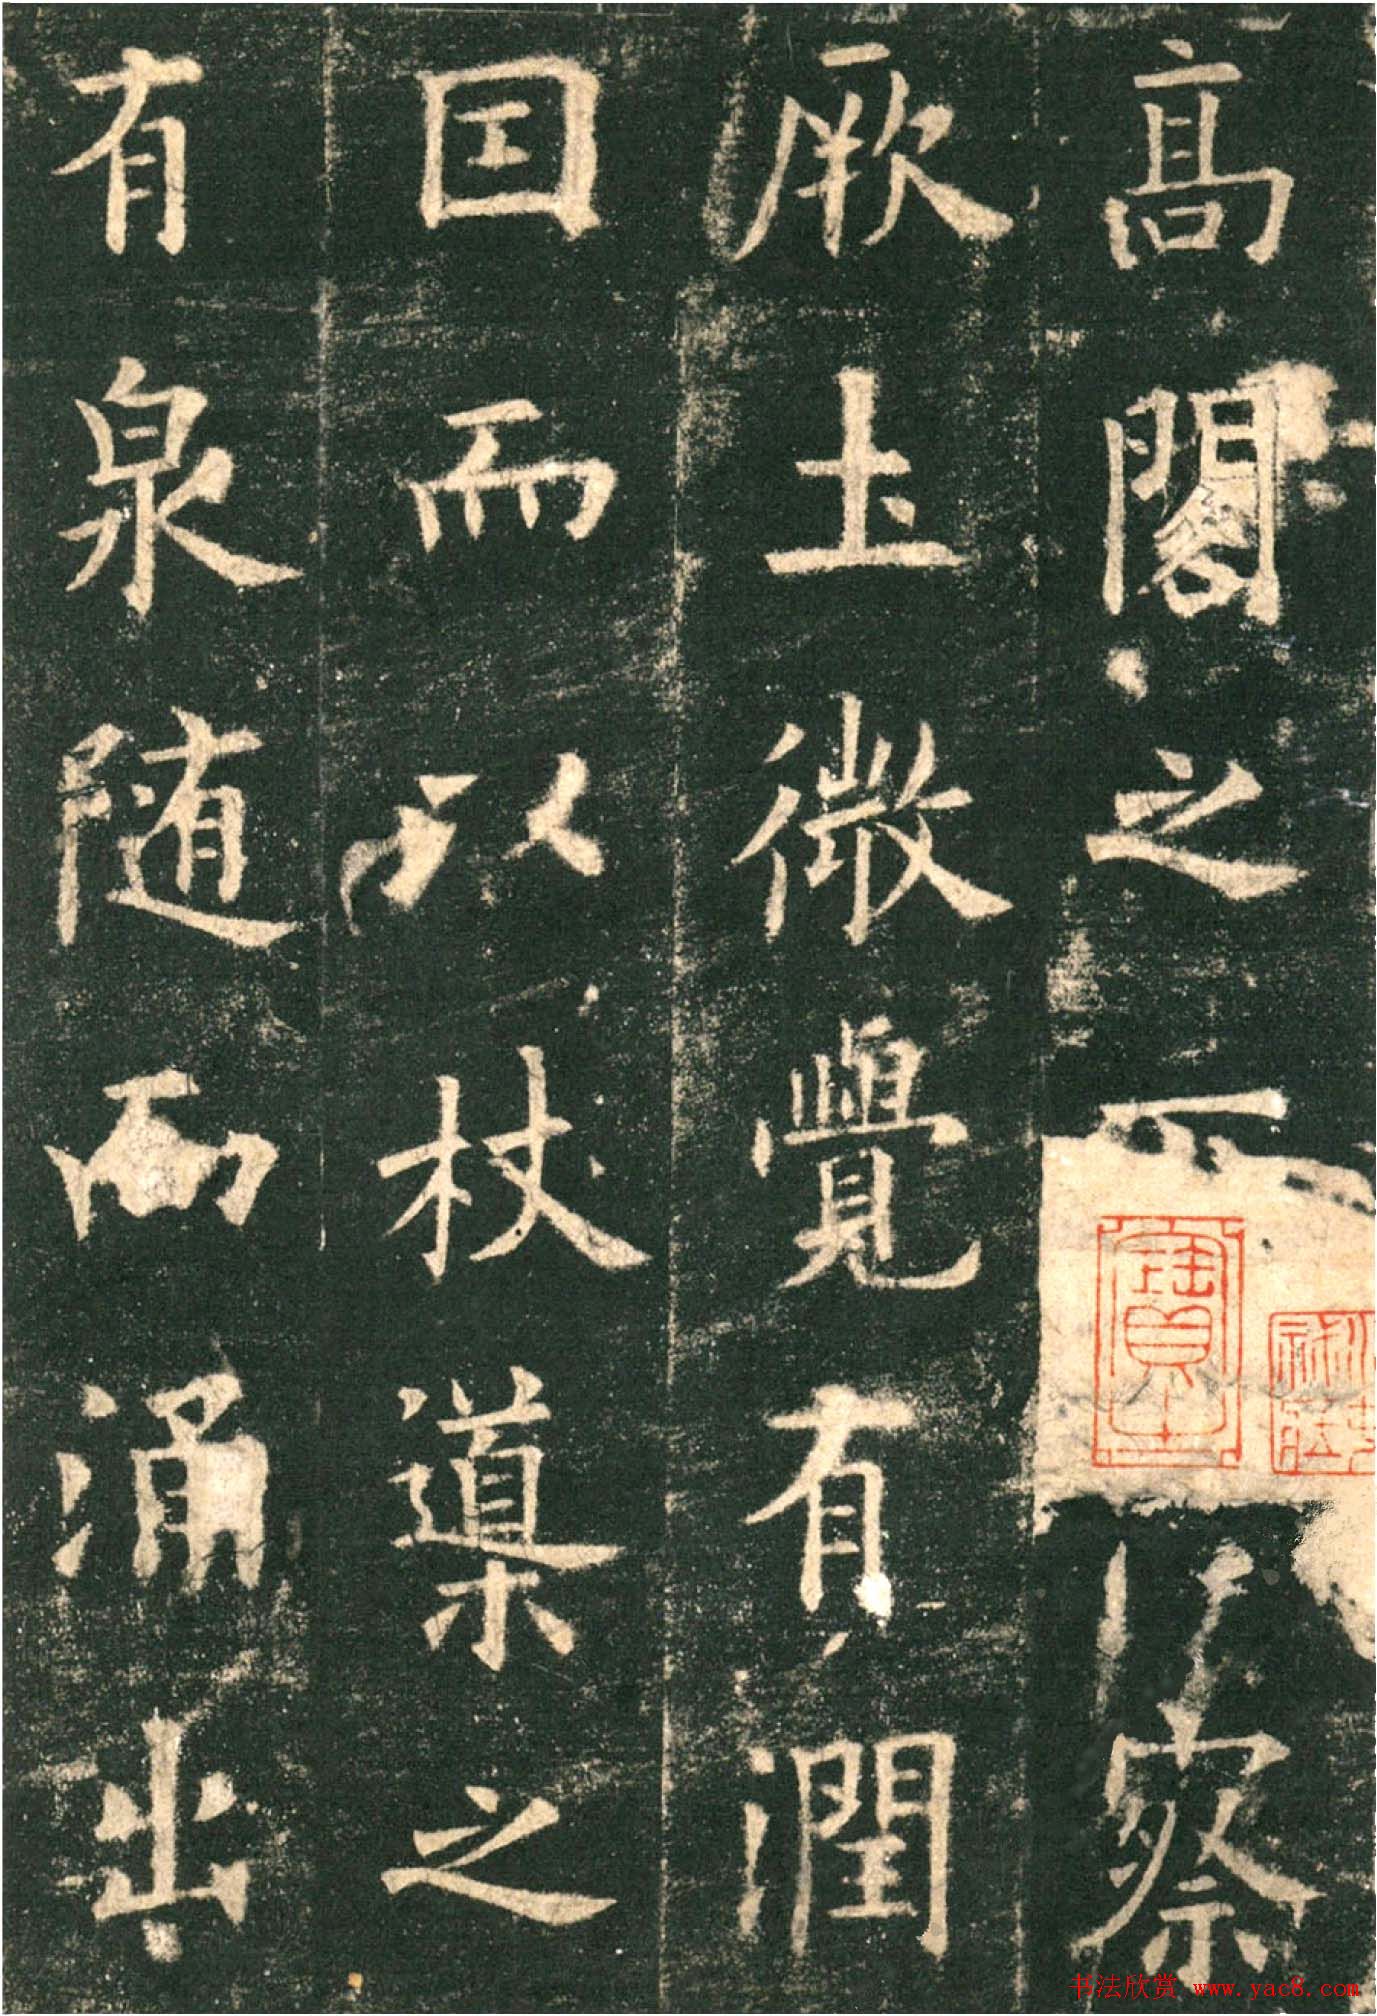 高閣之下
察
厥土微覺有潤
囙而以杖導之
有泉随而涌出
书法欣赏 www.yac8.com